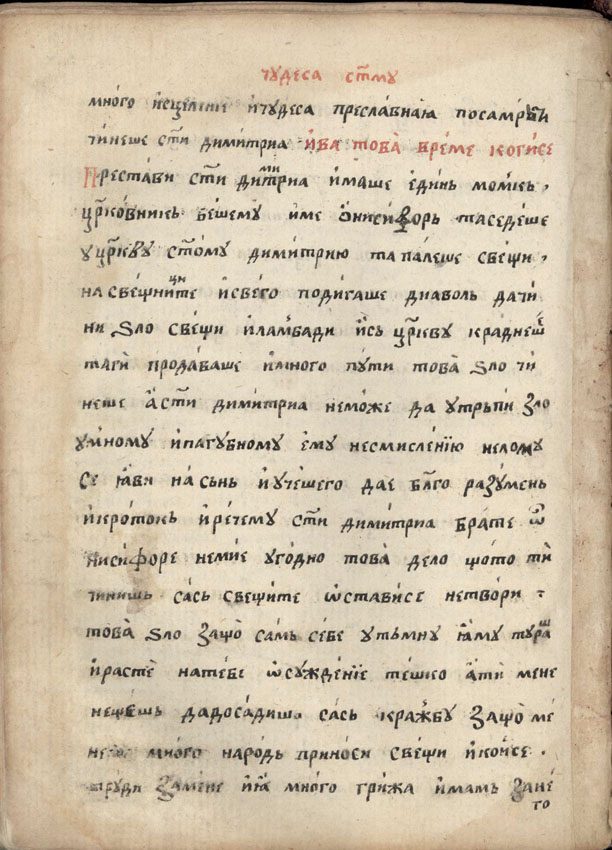 чꙋдеса ст҃мꙋ
много исцеленїе и҆чꙋдеса преславнаꙗ посамрьти
чинеше ст҃и димитриа и҆ва това̀ вре́ме коги́се
Преста́ви ст҃и дими́триа и҆маше еди́нь момкь ,
цр҃ко́вникь бе́шемꙋ и҆ме ѻ҆ниси́ѳорь таседе́ше
ꙋцр҃квꙋ ст҃о́мꙋ дими́трию тапалеше свещи ,
насве́щниците и҆све́го поди́гаше диаволь дачи́
ни ѕло свещи и҆ла́мбади и҆сь цр҃квꙋ кра́днеше
таги̏ продава́ше и҆много пꙋти това̀ ѕло чи́
неше а҆ст҃и димитриа неможе да ꙋтрьпи ꙁло
ꙋмномꙋ и҆пагꙋбномꙋ е҆мꙋ несмисле́нїю нело́мꙋ
се ꙗ҆ви на сьнь и҆ꙋче́шего да е бл҃го раꙁꙋ́мень
и҆кротокь и҆ре́чемꙋ ст҃и димитриа брате ѡ҆
ниси́форе неми́е ꙋго́дно това̀ дело що́то ти̏
чинишь сась све́щите ѡ҆ста́висе нетвори :
това̀ ѕло ꙁащо̀ са́мь се́бе ꙋтьмнꙋ ꙗ҆мꙋ тꙋрашь
и҆расте̏ нате́бе ѡ҆сꙋжде́нїе те́шко а҆ти̏ мене
не́щешь дадоса́дишь са́сь кра́жбꙋ ꙁащо̀ ме́
не много наро́дь приноси свещи и҆ко́исе .
трꙋди ꙁаме́не и҆ꙗ҆ много гри́жа и҆мамь ꙁане́
го